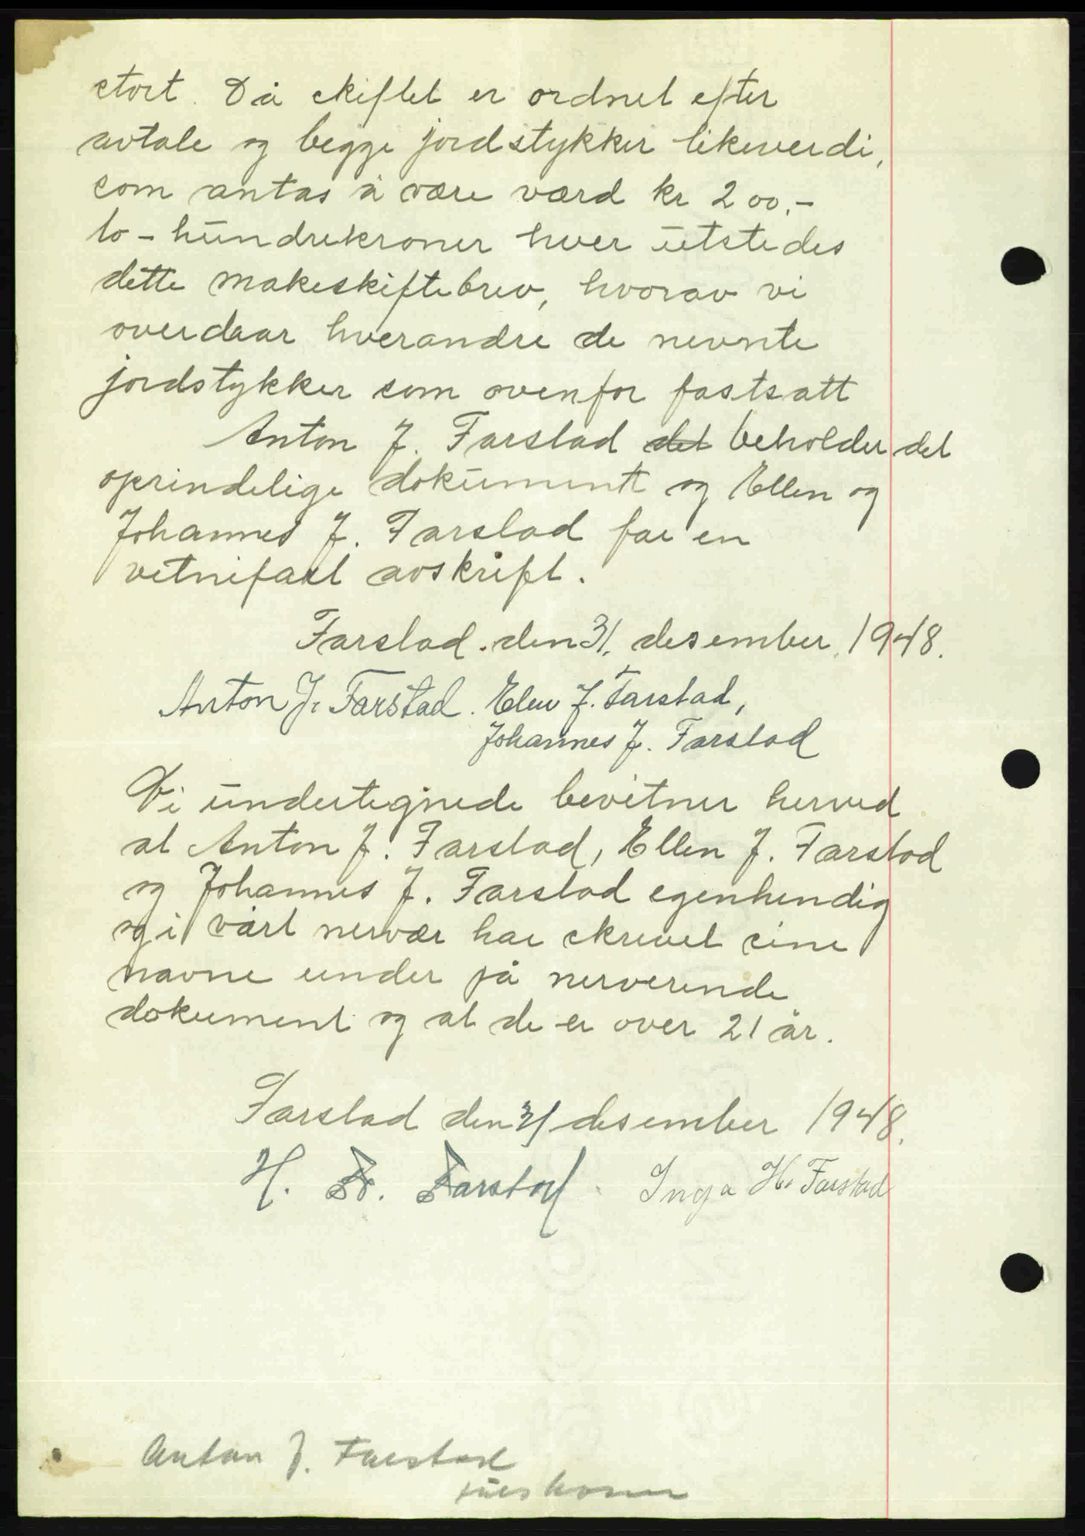 stort. Då skiftet er ordnet efter
avtale og begge jordstykker likeverdi,
som antas å være værd kr 200.-
to-hundrekroner hver utstedes
dette makeskiftebrev, hvorav vi
overdaar hverandre de nevnte
jordstykker som ovenfor fastsatt
Anton J. Farstad det beholder det
oprindelige dokument og Ellen og
Johannes J. Farstad får en
vitnifast avskrift.
Farstad den 31. desember 1948.
Anton J. Farstad. Elen J. Farstad,
Johannes J. Farstad
Vi undertegnede bevitner herved
at Anton J. Farstad, Ellen J. Farstad
og Johannes J. Farstad egenhendig
og i vårt nervær har skrevet sine
navne under på nerverende
dokument og at de er over 21 år.
Farstad den 31 desember 1948.
H. Farstad. Inga H. Farstad
Anton J. Farstad